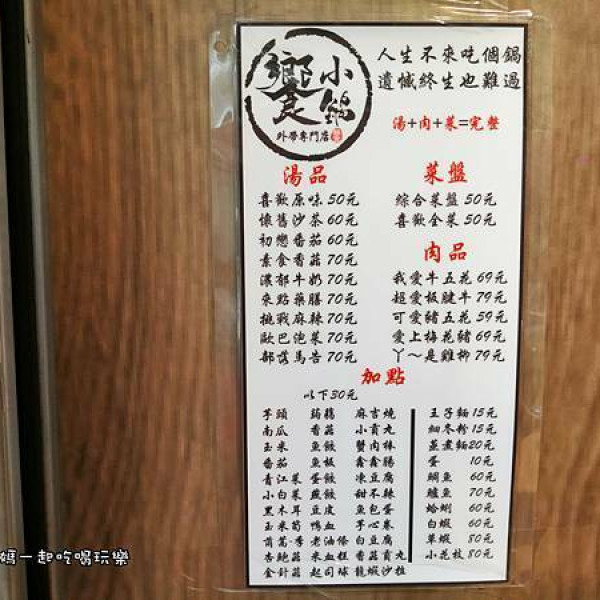 饗食小鍋
外帶專門店
人生不來吃個鍋
遺憾終生也難過
湯+肉+菜=完整
湯品
喜歡原味50元
懷舊沙茶60元
初戀番茄60元
素食香菇70元
濃郁牛奶70元
來點藥膳70元
挑戰麻辣70元
歐巴泡菜70元
部落馬告70元
菜盤
綜合菜盤50元
喜歡全菜50元
肉品
我愛牛五花69元
超愛板腱牛79元
可愛豬五花59元
愛上梅花豬69元
丫～是雞柳79元
加點
以下30元
芋頭 蒟蒻 麻吉燒
南瓜 香菇 小貢丸
玉米 魚餃 蟹肉棒
番茄 魚板 鑫鑫腸
青江菜 蛋餃 凍豆腐
小白菜 燕餃 甜不辣
黑木耳 豆皮 魚包蛋
玉米筍 鴨血 芋心卷
茼蒿 李老油條 白豆腐
杏鮑菇 米血糕 香菇貢丸
金針菇 起司球 龍蝦沙拉
王子麵15元
細冬粉15元
蒸煮麵20元
蛋 10元
鯛魚 60元
鱸魚 70元
蛤蜊 60元
白蝦 60元
草蝦 80元
小花枝80元
媽一起吃喝玩樂